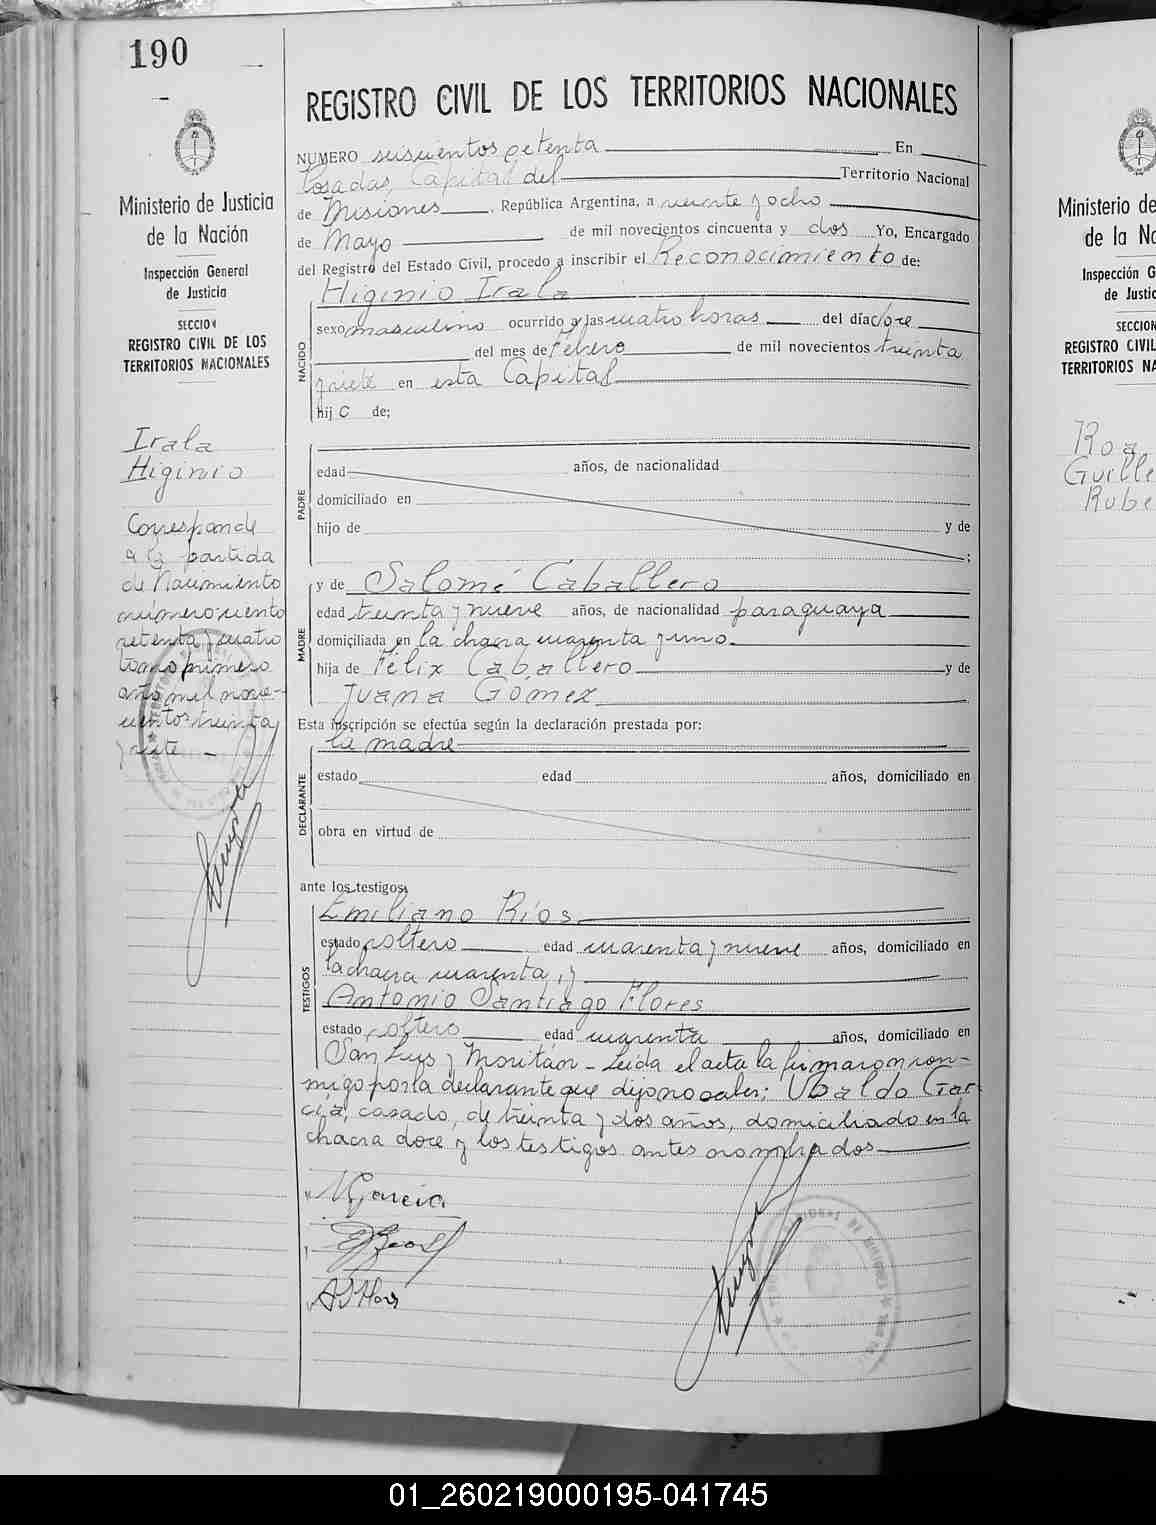 190
Ministerio de Justicia
de la Nación
Inspección General
de Justicia
SECCION
REGISTRO CIVIL DE LOS
TERRITORIOS NACIONALES
Irala
Higinio
Corresponde
a la partida
de Nacimiento
número ciento
setenta y cuatro
tomo primero
año mil nove-
cientos treinta
y siete -
REGISTRO CIVIL DE LOS TERRITORIOS NACIONALES
NUMERO seiscientos setenta En
Posadas, Capital del Territorio Nacional
de Misiones , República Argentina, a veinte y ocho
de Mayo de mil novecientos cincuenta y dos Yo, Encargado
del Registro del Estado Civil, procedo a inscribir el Reconocimiento de:
Higinio Irala
NACIDO
sexo masculino ocurrido a las cuatro horas del día doce
del mes de Febrero de mil novecientos treinta
y siete en esta Capital
hij o de;
PADRE
edad años, de nacionalidad
domiciliado en
hijo de y de
;
MADRE
y de Salomé Caballero
edad treinta y nueve años, de nacionalidad paraguaya
domiciliada en la chacra cuarenta y uno.
hija de Félix Caballero y de
Juana Gómez
Esta inscripción se efectúa según la declaración prestada por:
la madre
DECLARANTE
estado edad años, domiciliado en
obra en virtud de
ante los testigos;
Emiliano Ríos
TESTIGOS
estado soltero edad cuarenta y nueve años, domiciliado en
la chacra cuarenta, y
Antonio Santiago Flores
estado soltero edad cuarenta años, domiciliado en
San Luis y Moritán - Leida el acta la firmaron con-
migo por la declarante que dijo no saber; Ubaldo Gar
cía, casado, de treinta y dos años, domiciliado en la
chacra doce y los testigos antes nombrados
García
Ministerio de
de la Na
Inspección G
de Justic
SECCION
REGISTRO CIVIL
TERRITORIOS NA
Roa
Guille
Rube
01_260219000195-041745